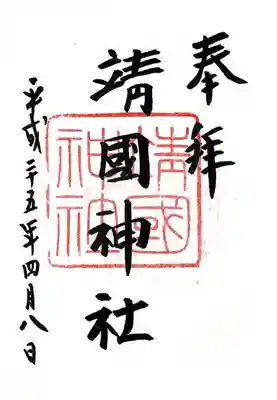 奉拝
靖國神社
靖國神社
平成二十五年四月八日